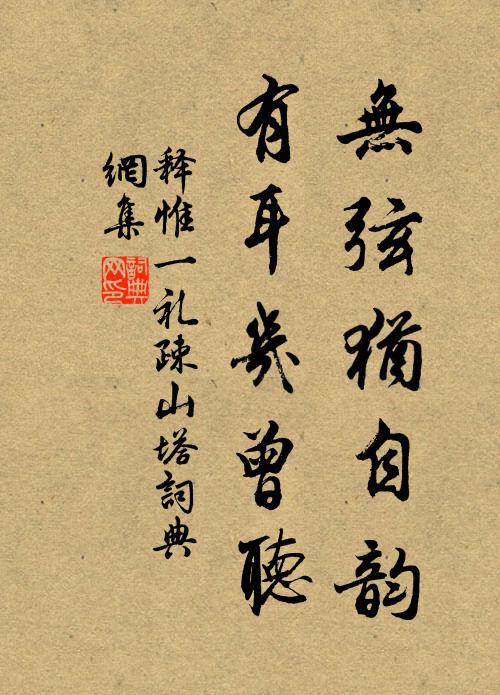 無弦猶自韵
有耳幾曾聽
释惟一礼疎山塔詞典
網集
詞典
网印